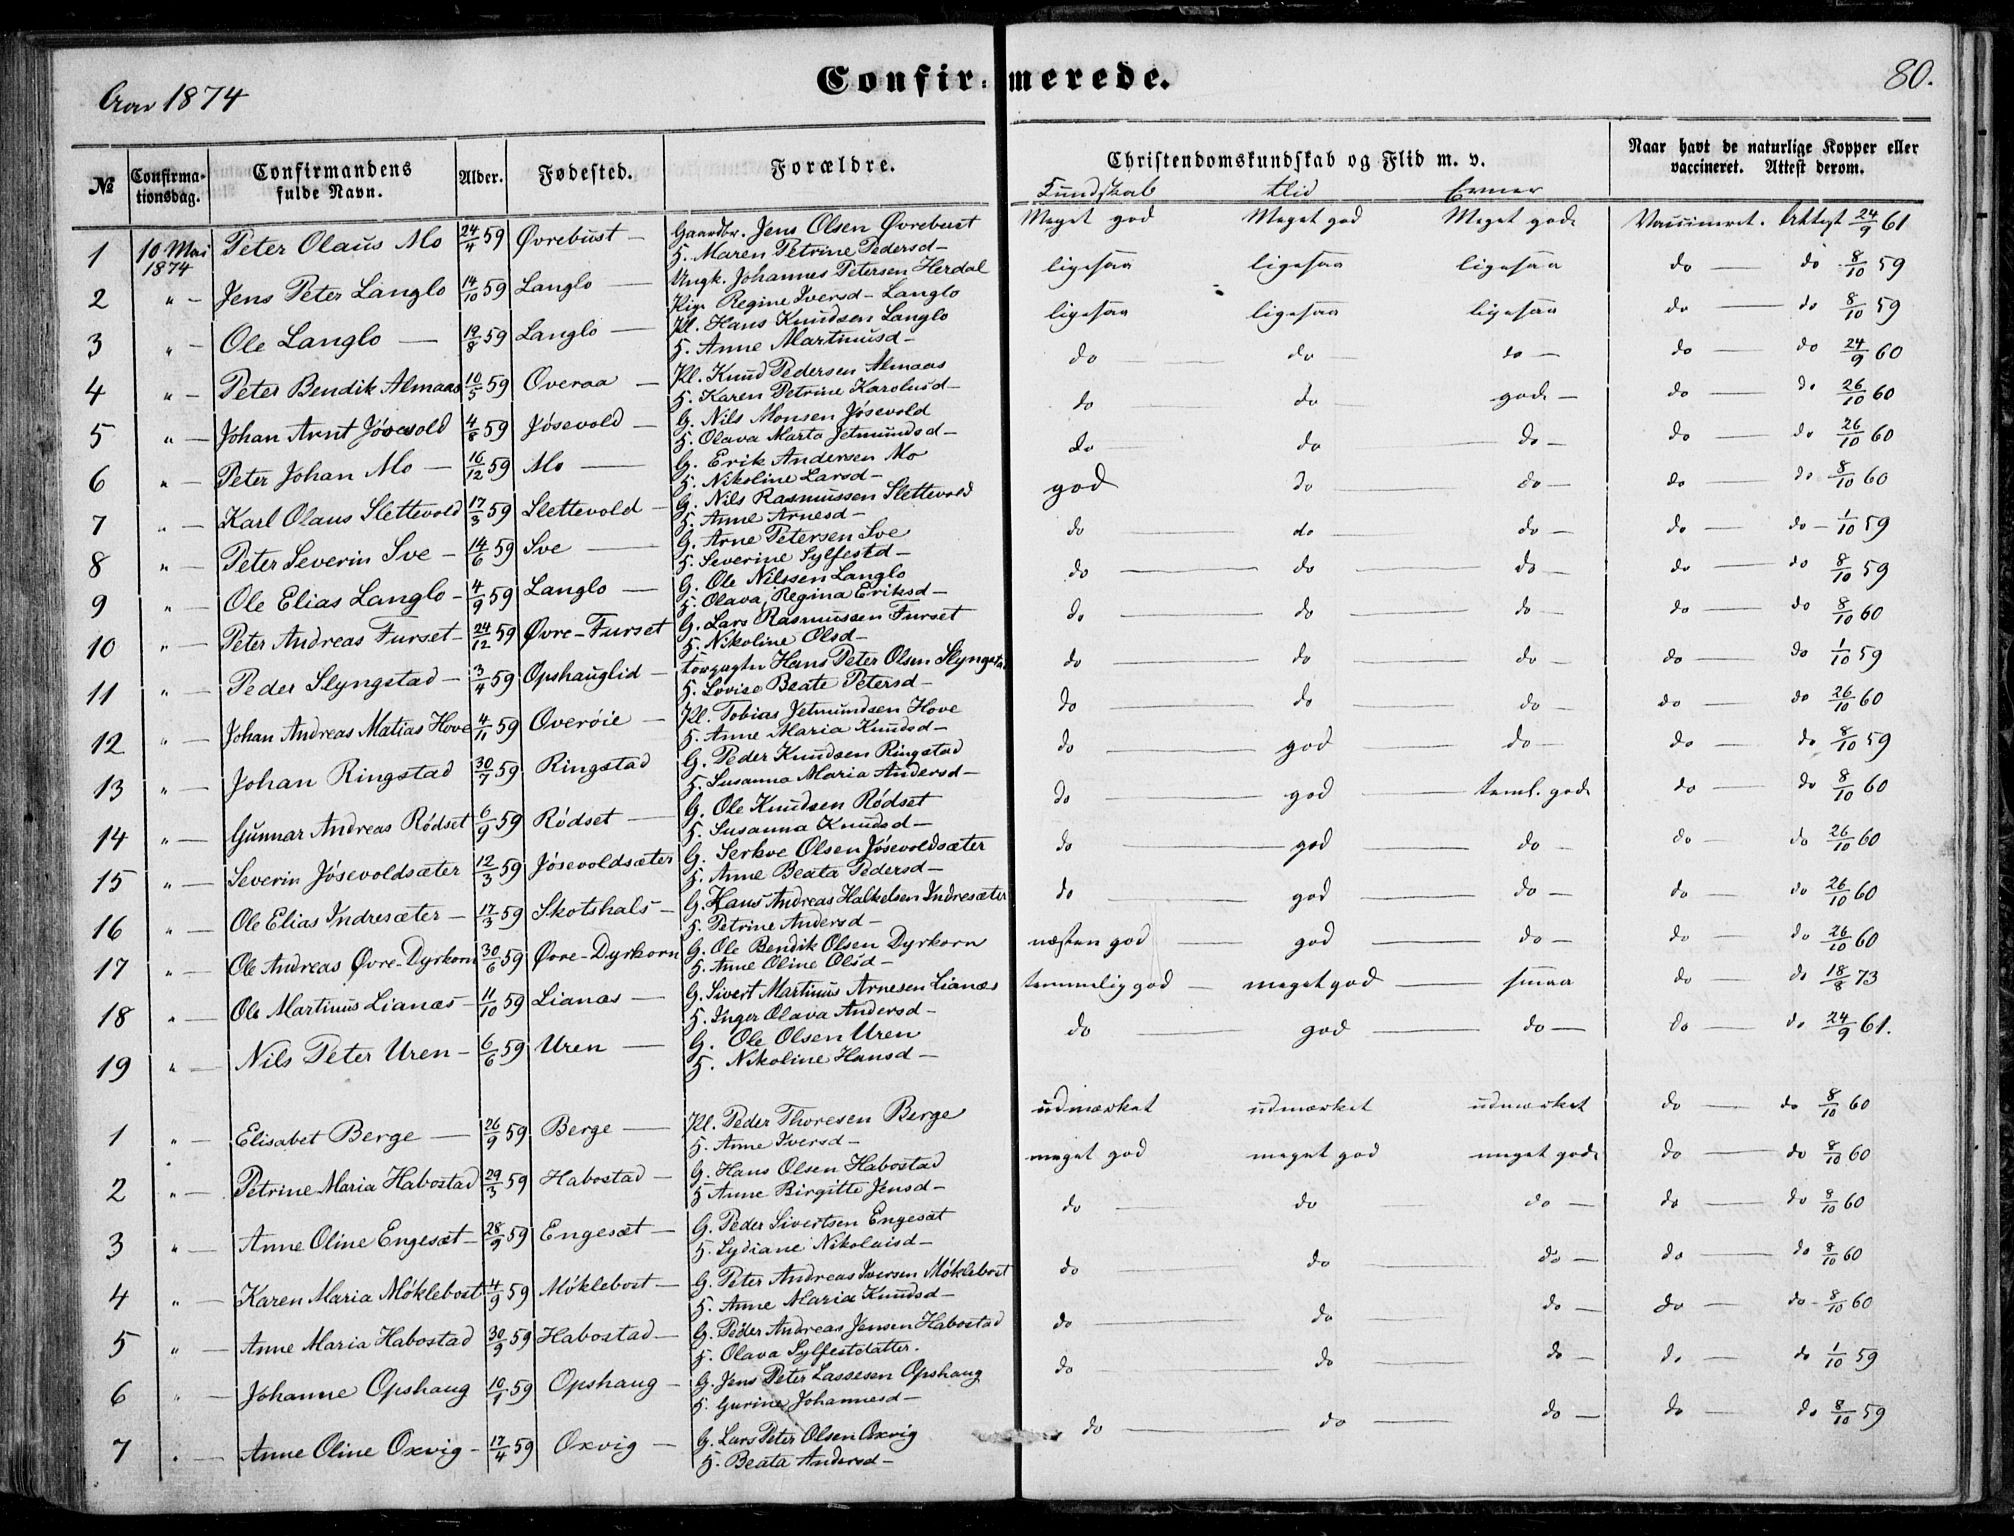 Aar 1874
Confirmerede.
80.
№
Confirmationsdag.
Confirmandens fulde Navn.
Alder.
Fødested.
Forældre.
Christendomskundskab og Flid m. v.
Kundskab Flid Evner
Naar havt de naturlige Kopper eller vaccineret. Attest derom.
1 10 Mai 1874 Peter Olaus Mo 24/4 59 Øvrebust — Gaardbr. Jens Olsen Øvrebust H. Maren Petrine Pedersd— Meget god Meget god Meget gode Vaccineret. Attest 24/9 61
2 " — Jens Peter Langlo 14/10 59 Langlo — Ungk. Johannes Petersen Herdal Pige Regine Iversd— Langlo ligesaa ligesaa ligesaa do — do 8/10 59
3 " — Ole Langlo — 19/8 59 Langlo — Kl. Hans Knudsen Langlo H. Anne Martinusd— ligesaa ligesaa ligesaa do — do 8/10 59
4 " — Peter Bendik Almaas 10/5 59 Overaa — Kl. Knud Pedersen Almaas H. Karen Petrine Karolusd— do — do — do — do — do 24/9 60
5 " — Johan Arnt Jøsevold 4/8 59 Jøsevold — G. Nils Monsen Jøsevold H. Olava Marta Jetmundsd— do — do — gode — do — do 26/10 60
6 " — Peter Johan Mo — 16/12 59 Mo — G. Erik Andersen Mo H. Nikoline Larsd— do — do — do — do — do 26/10 60
7 " — Karl Olaus Slettevold 17/3 59 Slettevold — G. Nils Rasmussen Slettevold H. Anne Arnesd— god do — do — do — do 8/10 60
8 " — Peter Severin Sve — 14/6 59 Sve — G. Arne Petersen Sve H. Severine Sylfestd— do — do — do — do — do — 1/10 59
9 " — Ole Elias Langlo — 4/9 59 Langlo — G. Ole Nilssen Langlo H. Olava Regina Eriksd— do — do — do — do — do 8/10 59
10 " — Peter Andreas Furset — 24/12 59 Øvre-Furset G. Lars Rasmussen Furset H. Nikoline Olsd— do — do — do — do — do 8/10 60
11 " — Peder Slyngstad — 3/4 59 Opshauglid — Hans Peter Olsen Slyngstad H. Lovise Beate Petersd— do — do — do — do — do 1/10 59
12 " — Johan Andreas Matias Hove 4/11 59 Overøie — Kl. Tobias Jetmundsen Hove H. Anne Maria Knudsd— do — do — do — do — do 26/10 60
13 " — Johan Ringstad 30/7 59 Ringstad G. Peder Knudsen Ringstad H. Susanna Maria Andersd— do — god — do — do — do 8/10 59
14 " — Gunnar Andreas Rødset 6/9 59 Rødset — G. Ole Knudsen Rødset H. Susanna Knudsd— do — god — teml. gode do — do 8/10 60
15 " — Severin Jøsevoldsæter 12/3 59 Jøsevoldsæter G. Serkve Olsen Jøsevoldsæter H. Anne Beata Pedersd— do — god — do — do — do 26/10 60
16 " — Ole Elias Indresæter — 17/3 59 Skotshals — G. Hans Andreas Halkelsen Indresæter H. Petrine Andersd— do — god — do — do — do 26/10 60
17 " — Ole Andreas Øvre-Dyrkorn 30/6 59 Øvre-Dyrkorn G. Ole Bendik Olsen Dyrkorn H. Anne Oline Olsd— næsten god god — do — do — do 26/10 60
18 " — Ole Martinus Lianæs — 11/10 59 Lianæs — G. Sivert Martinus Arnesen Lianæs H. Inger Olava Andersd— temmelig god — meget god — smaa do — do 18/8 73
19 " — Nils Peter Uren — 6/6 59 Uren — G. Ole Olsen Uren H. Nikoline Hansd— do god — do — do — do 24/9 61.
1 " — Elisabet Berge — 26/9 59 Berge — Kl. Peder Thoresen Berge H. Anne Iversd— udmærket udmærket udmærket do — do 8/10 60
2 " — Petrine Maria Habostad 29/3 59 Habostad — G. Hans Olsen Habostad H. Anne Birgitte Jensd— meget god meget god meget gode do — do 8/10 60
3 " — Anne Oline Engesæt — 28/9 59 Engesæt — G. Peder Sivertsen Engesæt H. Lydiane Nikolaisd— do — do — do — do — do 8/10 60
4 " — Karen Maria Møklebost 4/9 59 Møklebost — G. Peter Andreas Iversen Møklebost H. Anne Maria Knudsd— do — do — do — do — do 8/10 60
5 " — Anne Maria Habostad 30/9 59 Habostad — G. Peder Andreas Jensen Habostad H. Olava Sylfestdatter. do — do — do — do — do — 8/10 60
6 " — Johanne Opshaug 10/1 59 Opshaug — G. Jens Peter Lassesen Opshaug H. Gurine Johannesd— do — do — do — do — do 1/10 59
7 " — Anne Oline Oxvig — 17/4 59 Oxvig — G. Lars Peter Olsen Oxvig H. Beata Andersd— do — do — do — do — do 8/10 59